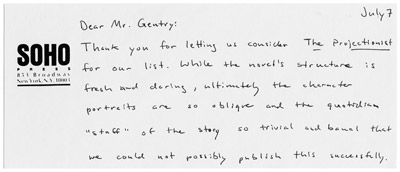 July 7
Dear Mr. Gentry:
SOHO
PRESS
853 Broadway
New York, N.Y. 10003
Thank you for letting us consider The Projectionist
for our list. While the novel's structure is
fresh and daring, ultimately the character
portraits are so oblique and the quotidian
"stuff" of the story so trivial and banal that
we could not possibly publish this successfully.